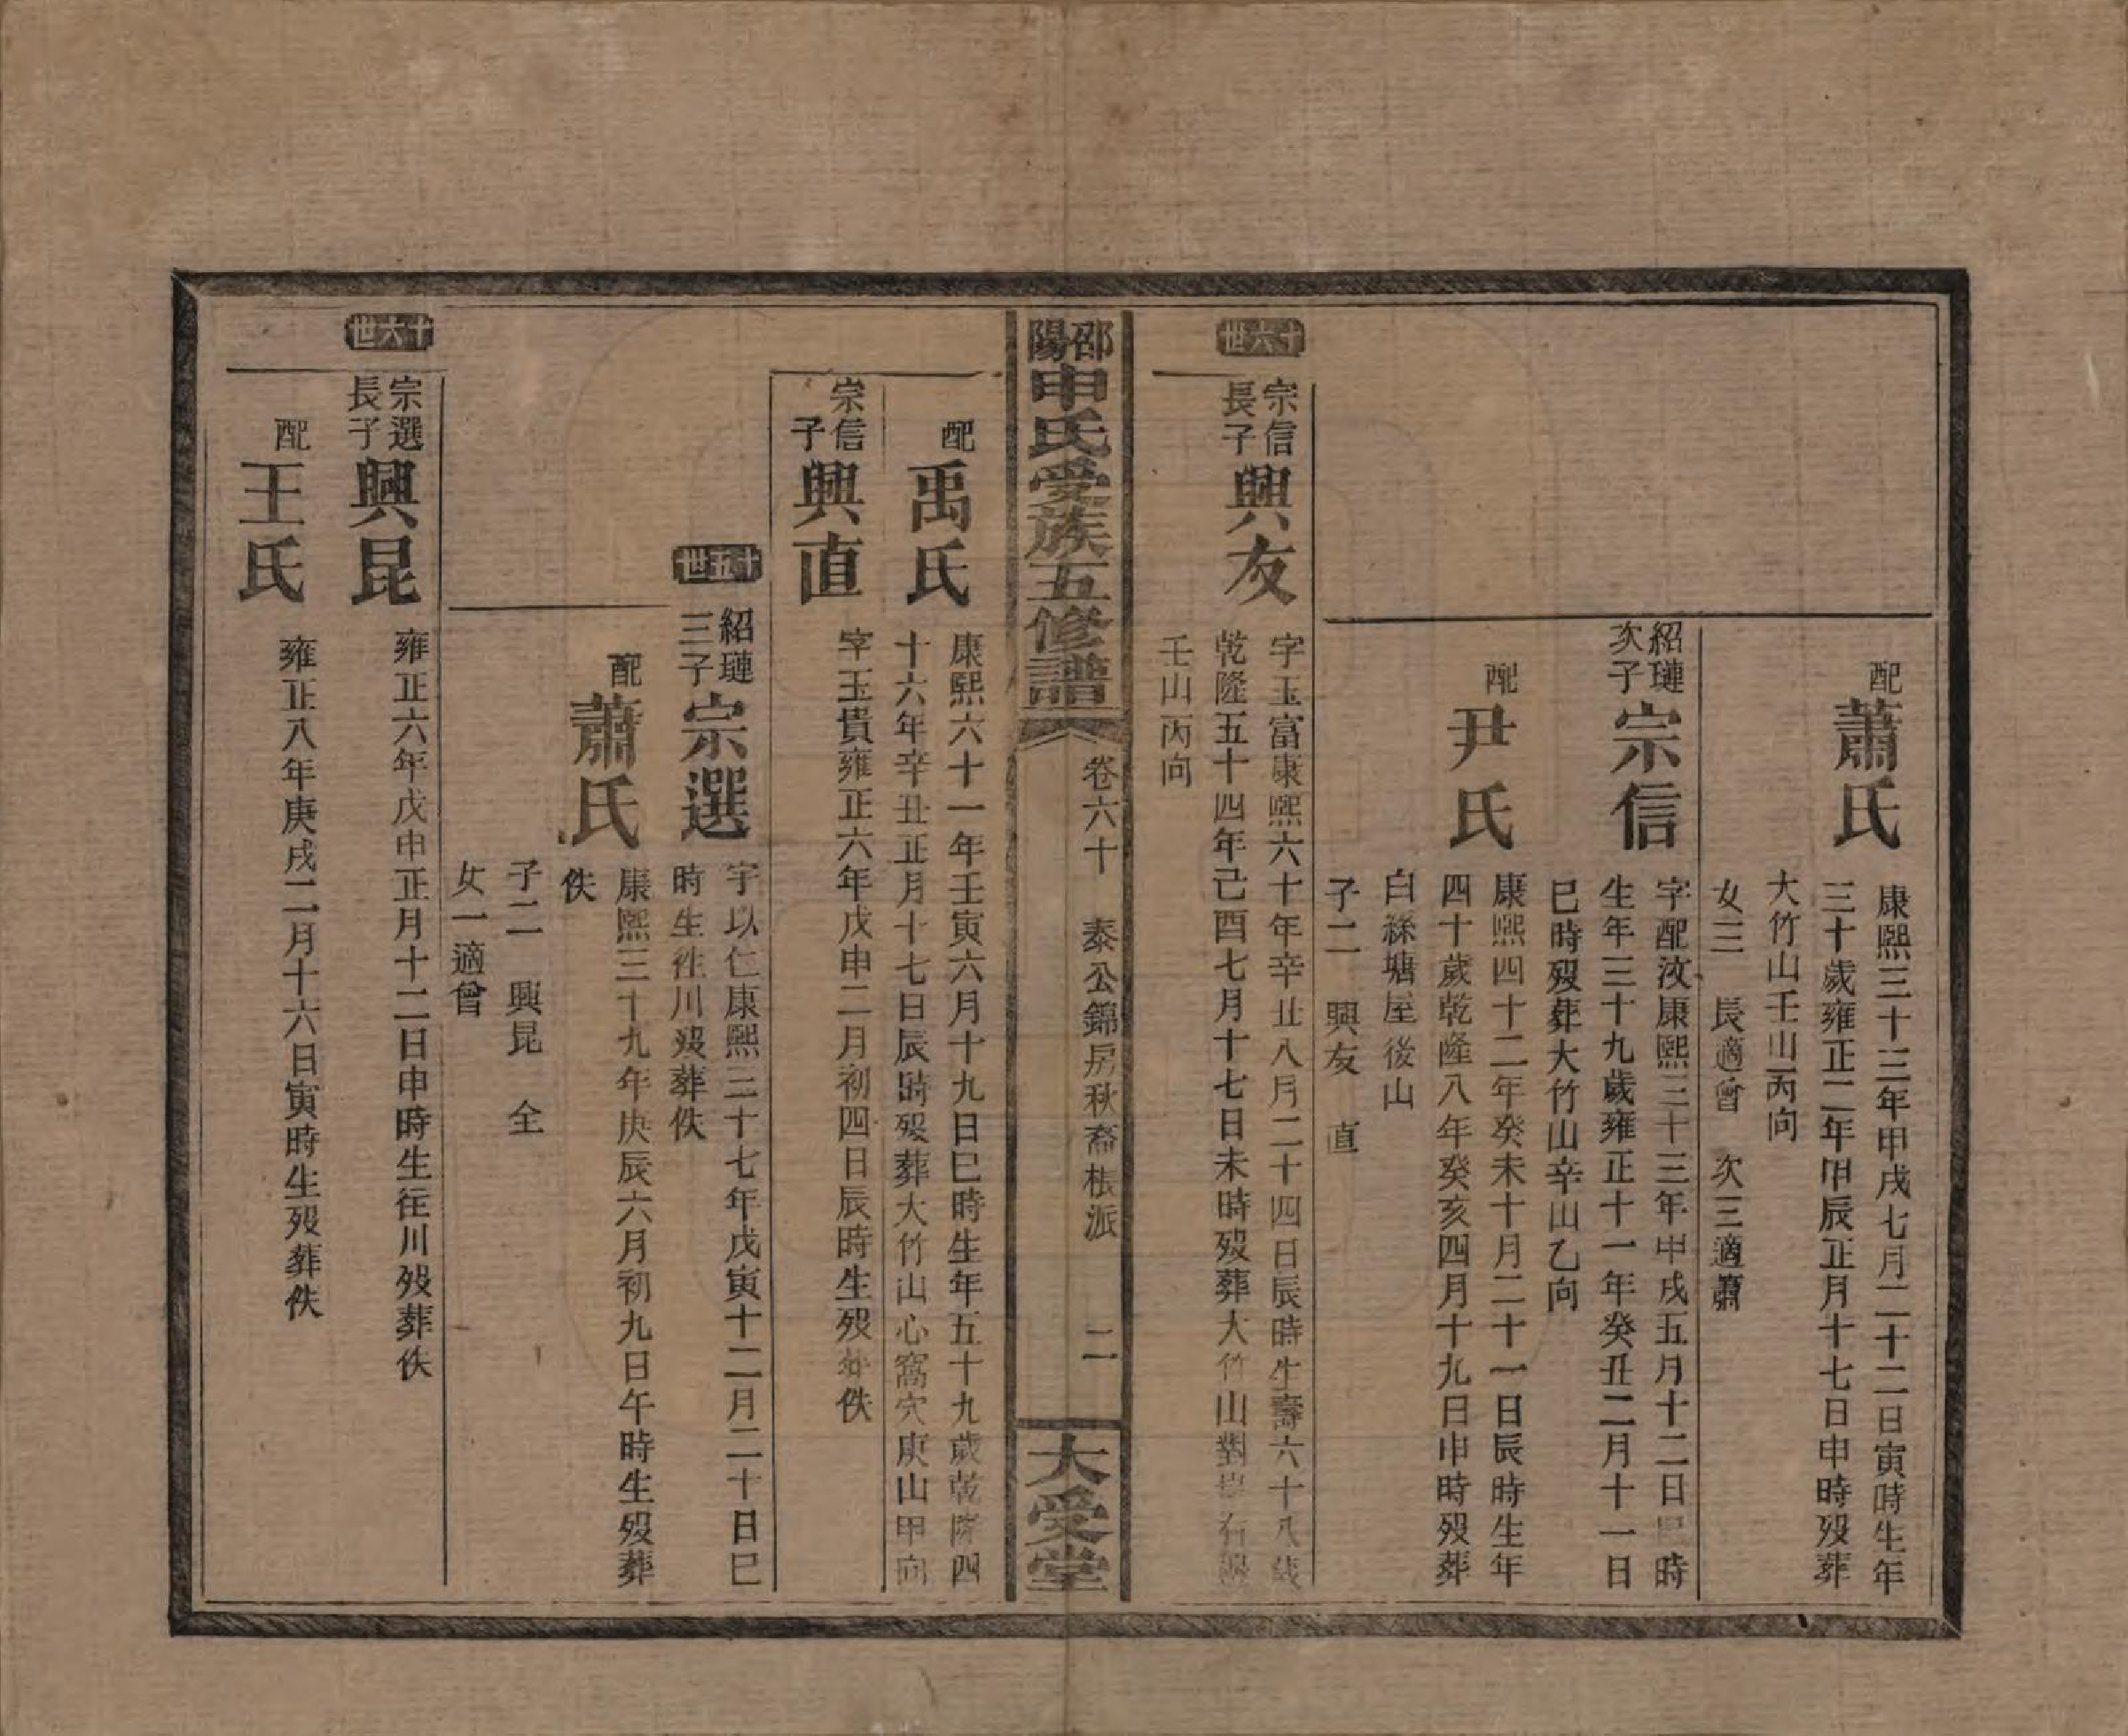 配
蕭氏
康熙三十三年甲戌七月二十二日寅時生年
三十歲雍正二年甲辰正月十七日申時歿葬
大竹山壬山丙向
女三 長適曾 次三適蕭
紹璉
次子
宗信
字配汶康熙三十三年甲戌五月十二日 時
生年三十九歲雍正十一年癸丑二月十一日
巳時歿葬大竹山辛山乙向
配
尹氏
康熙四十二年癸未十月二十一日辰時生年
四十歲乾隆八年癸亥四月十九日申時歿葬
白絲塘屋後山
子二 興友 直
十六世
宗信
長子
興友
字玉富康熙六十年辛丑八月二十四日辰時生壽六十八歲
乾隆五十四年己酉七月十七日未時歿葬大竹山對 右
壬山丙向
邵陽申氏受族五修譜
卷六十 泰公錦房秋裔根派 二
大受堂
配
禹氏
康熙六十一年壬寅六月十九日巳時生年五十九歲乾隆四
十六年辛丑正月十七日辰時歿葬大竹山心窩穴庚山甲向
宗信
子
興直
字玉貴雍正六年戊申二月初四日辰時生歿葬佚
十五世
紹璉
三子
宗選
字以仁康熙三十七年戊寅十二月二十日巳
時生徃川歿葬佚
配
蕭氏
康熙三十九年庚辰六月初九日午時生歿葬
佚
子二 興昆 全
女一適曾
十六世
宗選
長子
興昆
雍正六年戊申正月十二日申時生徃川歿葬佚
配
王氏
雍正八年庚戌二月十六日寅時生歿葬佚